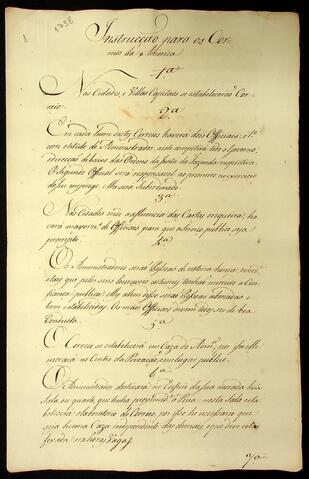 1
1798
Instrucção para os Cor-
reios da America
1ª
Nas Cidades, e Villas Capitaes se estabelecerá Cor-
reio.
2ª
Em cada hum destes Correios haverá dous Officiaes: o 1º
com o titulo de Administrador, a este competirá todo o Governo,
e direcção debaixo das Ordens da Junta da Fazenda respectiva
O Segundo Official será responsavel ao primeiro no exercicio
de seu emprego, e lhe será Subordinado.
3ª
Nas Cidades onde a affluencia das Cartas o requeira, ha-
verá maior nº de Officiaes para que o serviço publico seja
prompto.
4ª
Os Administradores serão Pessoas de notoria honra, e verd.e
e taes que pelos seus louvaveis costumes tenhão merecido a Con-
fiança publica: elles alem disso serão Pessoas abonadas e
bem estabelecidas. Os mais Officiaes devem tambem ser de boa
Conducta.
5ª
O Correio se estabelecerá em Caza do Admor., em que elle
morará no Centro da Povoação, em lugar publico.
6ª
O Administrador destinará no Espaço da sua morada huma
Sala, ou quarto, que tenha proximid.e á Rua: nesta Sala esta-
belecerá o laboratorio do Correio, por isso he necessario que
seja huma Caza independente das demais, e que deve estar
fexada nas horas Vagas
7ª